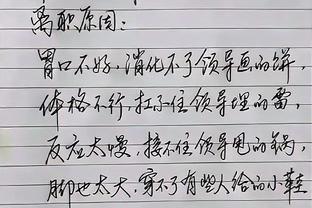 离职原因：
胃口不好，消化不了领导画的饼，
体格不行，扛不住领导埋的雷，
反应太慢，接不住领导甩的锅，
脚也太大，穿不了有些人给的小鞋